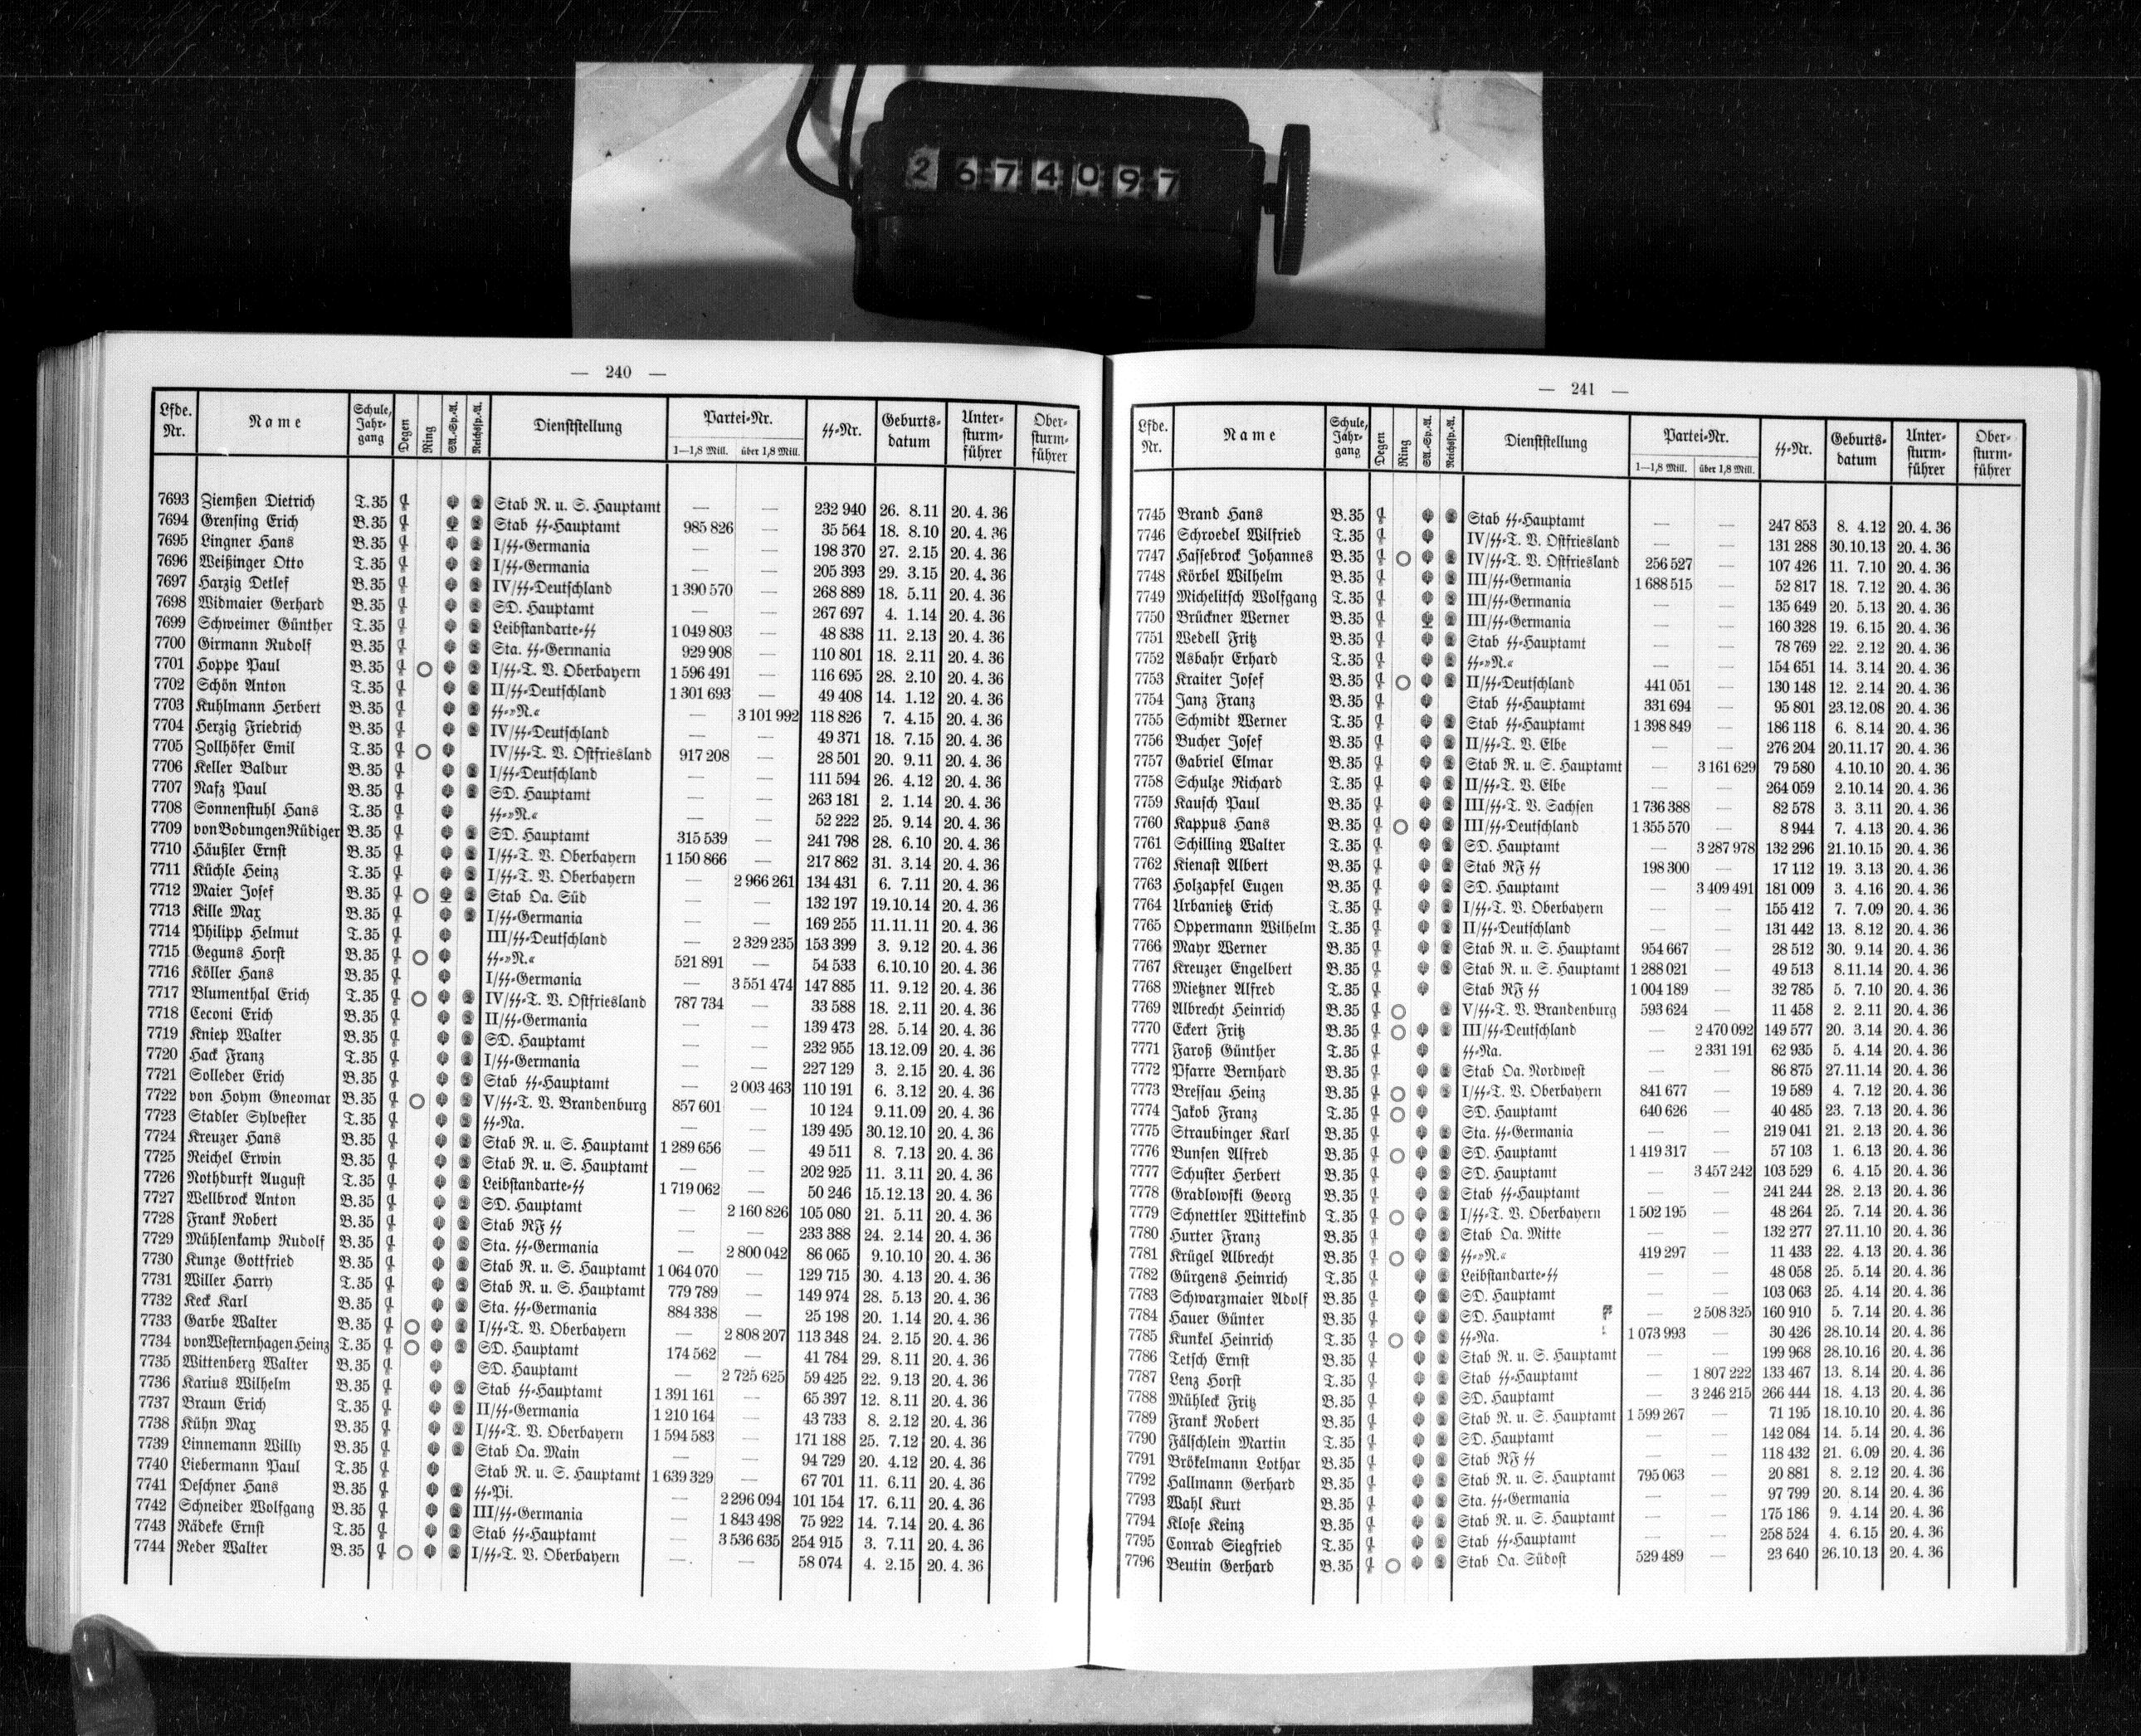 2674097
— 240 —
Lfde. Nr. Name Schule, Jahrgang Degen Ring SA.-Sp.-A. Reichssp.-A. Dienststellung Partei-Nr. 1—1,8 Mill. über 1,8 Mill. SS-Nr. Geburtsdatum Untersturmführer Obersturmführer
7693 Ziemßen Dietrich T.35 Stab R. u. S. Hauptamt — — 232 940 26. 8.11 20. 4. 36
7694 Grensing Erich B.35 Stab SS-Hauptamt 985 826 — 35 564 18. 8.10 20. 4. 36
7695 Lingner Hans B.35 I/SS-Germania — — 198 370 27. 2.15 20. 4. 36
7696 Weißinger Otto T.35 I/SS-Germania — — 205 393 29. 3.15 20. 4. 36
7697 Harzig Detlef B.35 IV/SS-Deutschland 1 390 570 — 268 889 18. 5.11 20. 4. 36
7698 Widmaier Gerhard B.35 SD. Hauptamt — — 267 697 4. 1.14 20. 4. 36
7699 Schweimer Günther T.35 Leibstandarte-SS 1 049 803 — 48 838 11. 2.13 20. 4. 36
7700 Girmann Rudolf B.35 Sta. SS-Germania 929 908 — 110 801 18. 2.11 20. 4. 36
7701 Hoppe Paul B.35 I/SS-T. V. Oberbayern 1 596 491 — 116 695 28. 2.10 20. 4. 36
7702 Schön Anton T.35 II/SS-Deutschland 1 301 693 — 49 408 14. 1.12 20. 4. 36
7703 Kuhlmann Herbert B.35 SS-»N.« — 3 101 992 118 826 7. 4.15 20. 4. 36
7704 Herzig Friedrich B.35 IV/SS-Deutschland — — 49 371 18. 7.15 20. 4. 36
7705 Zollhöfer Emil T.35 IV/SS-T. V. Ostfriesland 917 208 — 28 501 20. 9.11 20. 4. 36
7706 Keller Baldur B.35 I/SS-Deutschland — — 111 594 26. 4.12 20. 4. 36
7707 Nafz Paul B.35 SD. Hauptamt — — 263 181 2. 1.14 20. 4. 36
7708 Sonnenstuhl Hans T.35 SS-»N.« — — 52 222 25. 9.14 20. 4. 36
7709 von Bodungen Rüdiger B.35 SD. Hauptamt 315 539 — 241 798 28. 6.10 20. 4. 36
7710 Häußler Ernst B.35 I/SS-T. V. Oberbayern 1 150 866 — 217 862 31. 3.14 20. 4. 36
7711 Küchle Heinz T.35 I/SS-T. V. Oberbayern — 2 966 261 134 431 6. 7.11 20. 4. 36
7712 Maier Josef B.35 Stab Oa. Süd — — 132 197 19.10.14 20. 4. 36
7713 Kille Max B.35 I/SS-Germania — — 169 255 11.11.11 20. 4. 36
7714 Philipp Helmut T.35 III/SS-Deutschland — 2 329 235 153 399 3. 9.12 20. 4. 36
7715 Geguns Horst B.35 SS-»N.« 521 891 — 54 533 6.10.10 20. 4. 36
7716 Köller Hans B.35 I/SS-Germania — 3 551 474 147 885 11. 9.12 20. 4. 36
7717 Blumenthal Erich T.35 IV/SS-T. V. Ostfriesland 787 734 — 33 588 18. 2.11 20. 4. 36
7718 Ceconi Erich B.35 II/SS-Germania — — 139 473 28. 5.14 20. 4. 36
7719 Kniep Walter B.35 SD. Hauptamt — — 232 955 13.12.09 20. 4. 36
7720 Hack Franz T.35 I/SS-Germania — — 227 129 3. 2.15 20. 4. 36
7721 Solleder Erich B.35 Stab SS-Hauptamt — 2 003 463 110 191 6. 3.12 20. 4. 36
7722 von Hoym Gneomar B.35 V/SS-T. V. Brandenburg 857 601 — 10 124 9.11.09 20. 4. 36
7723 Stadler Sylvester T.35 SS-Na. — — 139 495 30.12.10 20. 4. 36
7724 Kreuzer Hans B.35 Stab R. u. S. Hauptamt 1 289 656 — 49 511 8. 7.13 20. 4. 36
7725 Reichel Erwin B.35 Stab R. u. S. Hauptamt — — 202 925 11. 3.11 20. 4. 36
7726 Nothdurft August T.35 Leibstandarte-SS 1 719 062 — 50 246 15.12.13 20. 4. 36
7727 Wellbrock Anton B.35 SD. Hauptamt — 2 160 826 105 080 21. 5.11 20. 4. 36
7728 Frank Robert B.35 Stab RF SS — — 233 388 24. 2.14 20. 4. 36
7729 Mühlenkamp Rudolf B.35 Sta. SS-Germania — 2 800 042 86 065 9.10.10 20. 4. 36
7730 Kunze Gottfried B.35 Stab R. u. S. Hauptamt 1 064 070 — 129 715 30. 4.13 20. 4. 36
7731 Willer Harry T.35 Stab R. u. S. Hauptamt 779 789 — 149 974 28. 5.13 20. 4. 36
7732 Keck Karl B.35 Sta. SS-Germania 884 338 — 25 198 20. 1.14 20. 4. 36
7733 Garbe Walter B.35 I/SS-T. V. Oberbayern — 2 808 207 113 348 24. 2.15 20. 4. 36
7734 von Westernhagen Heinz T.35 SD. Hauptamt 174 562 — 41 784 29. 8.11 20. 4. 36
7735 Wittenberg Walter B.35 SD. Hauptamt — 2 725 625 59 425 22. 9.13 20. 4. 36
7736 Karius Wilhelm B.35 Stab SS-Hauptamt 1 391 161 — 65 397 12. 8.11 20. 4. 36
7737 Braun Erich T.35 II/SS-Germania 1 210 164 — 43 733 8. 2.12 20. 4. 36
7738 Kühn Max B.35 I/SS-T. V. Oberbayern 1 594 583 — 171 188 25. 7.12 20. 4. 36
7739 Linnemann Willy B.35 Stab Oa. Main — — 94 729 20. 4.12 20. 4. 36
7740 Liebermann Paul T.35 Stab R. u. S. Hauptamt 1 639 329 — 67 701 11. 6.11 20. 4. 36
7741 Deschner Hans B.35 SS-Pi. — 2 296 094 101 154 17. 6.11 20. 4. 36
7742 Schneider Wolfgang B.35 III/SS-Germania — 1 843 498 75 922 14. 7.14 20. 4. 36
7743 Rädeke Ernst T.35 Stab SS-Hauptamt — 3 536 635 254 915 3. 7.11 20. 4. 36
7744 Reder Walter B.35 I/SS-T. V. Oberbayern — — 58 074 4. 2.15 20. 4. 36
— 241 —
Lfde. Nr. Name Schule, Jahrgang Degen Ring SA.-Sp.-A. Reichssp.-A. Dienststellung Partei-Nr. 1—1,8 Mill. über 1,8 Mill. SS-Nr. Geburtsdatum Untersturmführer Obersturmführer
7745 Brand Hans B.35 Stab SS-Hauptamt — — 247 853 8. 4.12 20. 4. 36
7746 Schroedel Wilfried T.35 IV/SS-T. V. Ostfriesland — — 131 288 30.10.13 20. 4. 36
7747 Hassebrock Johannes B.35 IV/SS-T. V. Ostfriesland 256 527 — 107 426 11. 7.10 20. 4. 36
7748 Körbel Wilhelm B.35 III/SS-Germania 1 688 515 — 52 817 18. 7.12 20. 4. 36
7749 Michelitsch Wolfgang T.35 III/SS-Germania — — 135 649 20. 5.13 20. 4. 36
7750 Brückner Werner B.35 III/SS-Germania — — 160 328 19. 6.15 20. 4. 36
7751 Wedell Fritz B.35 Stab SS-Hauptamt — — 78 769 22. 2.12 20. 4. 36
7752 Asbahr Erhard T.35 SS-»N.« — — 154 651 14. 3.14 20. 4. 36
7753 Kraiter Josef B.35 II/SS-Deutschland 441 051 — 130 148 12. 2.14 20. 4. 36
7754 Janz Franz B.35 Stab SS-Hauptamt 331 694 — 95 801 23.12.08 20. 4. 36
7755 Schmidt Werner T.35 Stab SS-Hauptamt 1 398 849 — 186 118 6. 8.14 20. 4. 36
7756 Bucher Josef B.35 II/SS-T. V. Elbe — — 276 204 20.11.17 20. 4. 36
7757 Gabriel Elmar B.35 Stab R. u. S. Hauptamt — 3 161 629 79 580 4.10.10 20. 4. 36
7758 Schulze Richard T.35 II/SS-T. V. Elbe — — 264 059 2.10.14 20. 4. 36
7759 Kausch Paul B.35 III/SS-T. V. Sachsen 1 736 388 — 82 578 3. 3.11 20. 4. 36
7760 Kappus Hans B.35 III/SS-Deutschland 1 355 570 — 8 944 7. 4.13 20. 4. 36
7761 Schilling Walter T.35 SD. Hauptamt — 3 287 978 132 296 21.10.15 20. 4. 36
7762 Kienast Albert B.35 Stab RF SS 198 300 — 17 112 19. 3.13 20. 4. 36
7763 Holzapfel Eugen B.35 SD. Hauptamt — 3 409 491 181 009 3. 4.16 20. 4. 36
7764 Urbanietz Erich T.35 I/SS-T. V. Oberbayern — — 155 412 7. 7.09 20. 4. 36
7765 Oppermann Wilhelm T.35 II/SS-Deutschland — — 131 442 13. 8.12 20. 4. 36
7766 Mayr Werner B.35 Stab R. u. S. Hauptamt 954 667 — 28 512 30. 9.14 20. 4. 36
7767 Kreuzer Engelbert B.35 Stab R. u. S. Hauptamt 1 288 021 — 49 513 8.11.14 20. 4. 36
7768 Mietzner Alfred T.35 Stab RF SS 1 004 189 — 32 785 5. 7.10 20. 4. 36
7769 Albrecht Heinrich B.35 V/SS-T. V. Brandenburg 593 624 — 11 458 2. 2.11 20. 4. 36
7770 Eckert Fritz B.35 III/SS-Deutschland — 2 470 092 149 577 20. 3.14 20. 4. 36
7771 Faroß Günther T.35 SS-Na. — 2 331 191 62 935 5. 4.14 20. 4. 36
7772 Pfarre Bernhard B.35 Stab Oa. Nordwest — — 86 875 27.11.14 20. 4. 36
7773 Bressau Heinz B.35 I/SS-T. V. Oberbayern 841 677 — 19 589 4. 7.12 20. 4. 36
7774 Jakob Franz T.35 SD. Hauptamt 640 626 — 40 485 23. 7.13 20. 4. 36
7775 Straubinger Karl B.35 Sta. SS-Germania — — 219 041 21. 2.13 20. 4. 36
7776 Bunsen Alfred B.35 SD. Hauptamt 1 419 317 — 57 103 1. 6.13 20. 4. 36
7777 Schuster Herbert B.35 SD. Hauptamt — 3 457 242 103 529 6. 4.15 20. 4. 36
7778 Gradlowski Georg B.35 Stab SS-Hauptamt — — 241 244 28. 2.13 20. 4. 36
7779 Schnettler Wittekind T.35 I/SS-T. V. Oberbayern 1 502 195 — 48 264 25. 7.14 20. 4. 36
7780 Hurter Franz B.35 Stab Oa. Mitte — — 132 277 27.11.10 20. 4. 36
7781 Krügel Albrecht B.35 SS-»N.« 419 297 — 11 433 22. 4.13 20. 4. 36
7782 Gürgens Heinrich T.35 Leibstandarte-SS — — 48 058 25. 5.14 20. 4. 36
7783 Schwarzmaier Adolf B.35 SD. Hauptamt — — 103 063 25. 4.14 20. 4. 36
7784 Hauer Günter B.35 SD. Hauptamt — 2 508 325 160 910 5. 7.14 20. 4. 36
7785 Kunkel Heinrich T.35 SS-Na. 1 073 993 — 30 426 28.10.14 20. 4. 36
7786 Tetsch Ernst B.35 Stab R. u. S. Hauptamt — — 199 968 28.10.16 20. 4. 36
7787 Lenz Horst T.35 Stab SS-Hauptamt — 1 807 222 133 467 13. 8.14 20. 4. 36
7788 Mühleck Fritz B.35 SD. Hauptamt — 3 246 215 266 444 18. 4.13 20. 4. 36
7789 Frank Robert B.35 Stab R. u. S. Hauptamt 1 599 267 — 71 195 18.10.10 20. 4. 36
7790 Fälschlein Martin T.35 SD. Hauptamt — — 142 084 14. 5.14 20. 4. 36
7791 Brökelmann Lothar B.35 Stab RF SS — — 118 432 21. 6.09 20. 4. 36
7792 Hallmann Gerhard B.35 Stab R. u. S. Hauptamt 795 063 — 20 881 8. 2.12 20. 4. 36
7793 Wahl Kurt B.35 Sta. SS-Germania — — 97 799 20. 8.14 20. 4. 36
7794 Klose Keinz B.35 Stab R. u. S. Hauptamt — — 175 186 9. 4.14 20. 4. 36
7795 Conrad Siegfried T.35 Stab SS-Hauptamt — — 258 524 4. 6.15 20. 4. 36
7796 Beutin Gerhard B.35 Stab Oa. Südost 529 489 — 23 640 26.10.13 20. 4. 36